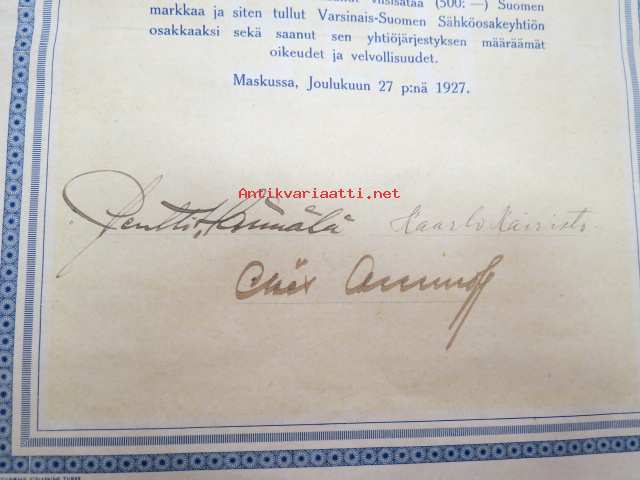 viisisataa (500:—) Suomen
markkaa ja siten tullut Varsinais-Suomen Sähköosakeyhtiön
osakkaaksi sekä saanut sen yhtiöjärjestyksen määräämät
oikeudet ja velvollisuudet.
Maskussa, Joulukuun 27 p:nä 1927.
Antikvariaatti.net
Pentti Kaarlo
Aminoff